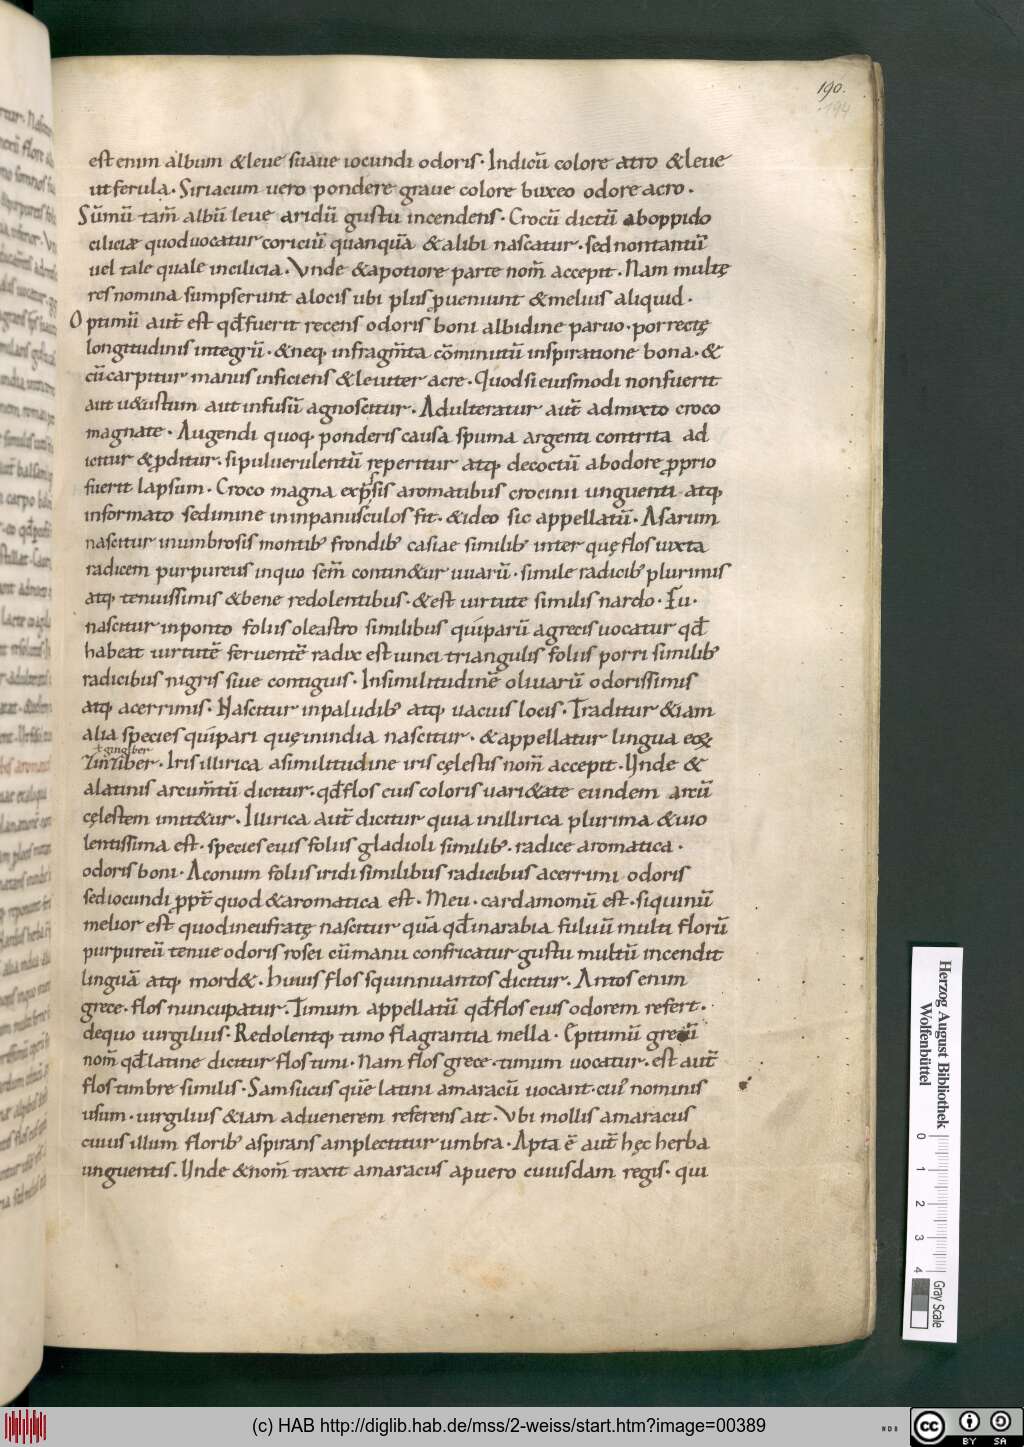 190.
194
est enim album & leue suaue iocundi odoris. Indicū colore atro & leue
ut ferula. Siriacum uero pondere graue colore buxeo odore acro.
Sūmū tam̄ albū leue aridū gustu incendens. Crocū dictū aboppido
ciliciæ quod uocatur coriciū quanquā & alibi nascatur. sed non tantū
uel tale quale incilicia. Vnde & apotiore parte nom̄ accepit. Nam multę
res nomina sumpserunt alocis ubi plus ꝓueniunt & melius aliquid.
Optimū aut̄ est qđ fuerit recens odoris boni albidine paruo. porrectę
longitudinis integrū. & neq; infragm̄ta cōminutū inspiratione bona. &
cū carpitur manus inficiens & leuiter acre. Quod si eiusmodi non fuerit
aut u&ustum aut infusū agnoscitur. Adulteratur aut̄ admixto croco
magnate. Augendi quoq; ponderis causa spuma argenti contrita ad
icitur & ꝓditur. si puluerulentū reperitur atq; decoctū abodore ꝓprio
fuerit lapsum. Croco magna exp̄ssis aromatibus crocinii unguenti atq;
informato sedimine ininpanusculos fit. & ideo sic appellatū. Asarum
nascitur inumbrosis montib; frondib; casiae similib; inter quę flos iuxta
radicem purpureus inquo sem̄ contin&ur uuarū. simile radicib; plurimis
atq; tenuissimis & bene redolentibus. & est uirtute similis nardo. Fu.
nascitur inponto folus oleastro similibus quiparū agrecis uocatur qđ
habeat uirtutē feruentē radix est iunci triangulis folus porri similib;
radicibus nigris siue contiguis. Insimilitudinē oliuarū odorissimis
atq; acerrimis. Nascitur inpaludib; atq; uacuis locis. Traditur & iam
alia species quipari quę inindia nascitur. & appellatur lingua eoꝝ
ł gingiber
zinziber. Iris illirica asimilitudine iris cęlestis nom̄ accepit. Unde &
alatinis arcum̄tū dicitur. qđ flos eius coloris uari&ate eundem arcū
cęlestem imit&ur. Illirica aut̄ dicitur quia inillirica plurima & uio
lentissima est. species eius folus gladioli similib;. radice aromatica.
odoris boni. Aconum folus iridi similibus radicibus acerrimi odoris
sed iocundi ꝓpt̄ quod & aromatica est. Meu. cardamomū est. siquinū
melior est quod ineufratę nascitur quā qđ inarabia fuluū multi florū
purpureū tenue odoris rosei cū manu confricatur gustu multū incendit
linguā atq; mord&. huius flos squinnuantos dicitur. Antos enim
grece. flos nuncupatur. Timum appellatū qđ flos eius odorem refert.
dequo uirgilius. Redolentq; timo flagrantia mella. Epitimū grecū
nom̄ qđ latine dicitur flos timi. Nam flos grece. timum uocatur. est aut̄
flos timbre similis. Samsucus quē latini amaracū uocant. cui' nominis
usum. uirgilius & iam aduenerem referens ait. Vbi mollis amaracus
cuius illum florib; aspirans amplectitur umbra. Apta ē aut̄ hęc herba
unguentis. Unde & nom̄ traxit amaracus apuero cuiusdam regis. qui
Herzog August Bibliothek
Wolfenbüttel
0 1 2 3 4
Gray Scale
(c) HAB http://diglib.hab.de/mss/2-weiss/start.htm?image=00389
cc BY SA